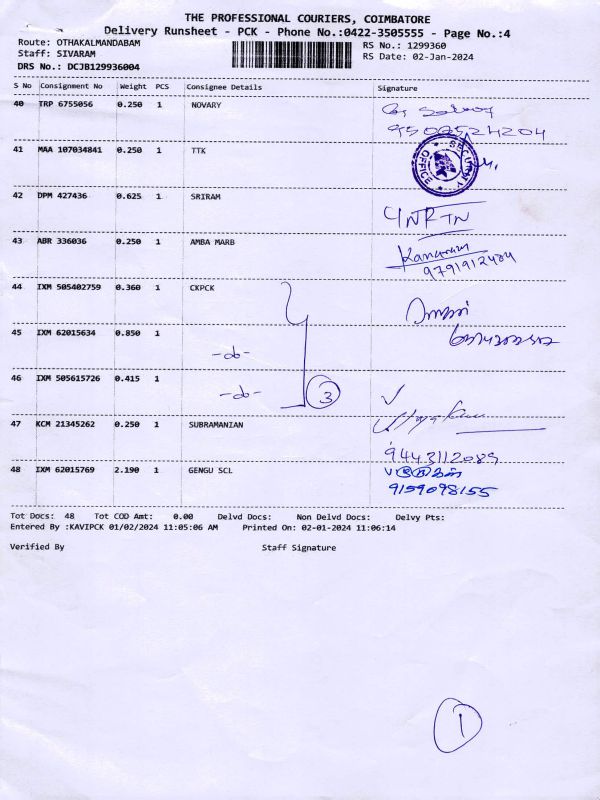 THE PROFESSIONAL COURIERS, COIMBATORE
Delivery Runsheet - PCK - Phone No.:0422-3505555 - Page No.:4
Route: OTHAKALMANDABAM RS No.: 1299360
Staff: SIVARAM RS Date: 02-Jan-2024
DRS No.: DCJB129936004
S No Consignment No Weight PCS Consignee Details Signature
40 TRP 6755056 0.250 1 NOVARY
9500524204
41 MAA 107034841 0.250 1 TTK
SECURITY OFFICE
42 DPM 427436 0.625 1 SRIRAM
43 ABR 336036 0.250 1 AMBA MARB
9791912484
44 IXM 505402759 0.360 1 CKPCK
45 IXM 62015634 0.850 1
-do-
46 IXM 505615726 0.415 1
-do- 3
47 KCM 21345262 0.250 1 SUBRAMANIAN
9443112089
48 IXM 62015769 2.190 1 GENGU SCL
9159098155
Tot Docs: 48 Tot COD Amt: 0.00 Delvd Docs: Non Delvd Docs: Delvy Pts:
Entered By :KAVIPCK 01/02/2024 11:05:06 AM Printed On: 02-01-2024 11:06:14
Verified By Staff Signature
1